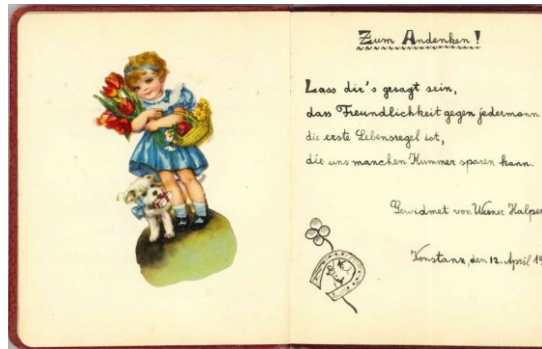 Zum Andenken!
Lass dir's gesagt sein,
dass Freundlichkeit gegen jedermann
die erste Lebensregel ist,
die uns manchen Kummer sparen kann.
Gewidmet von Werner Halper
Konstanz, den 12. April 19